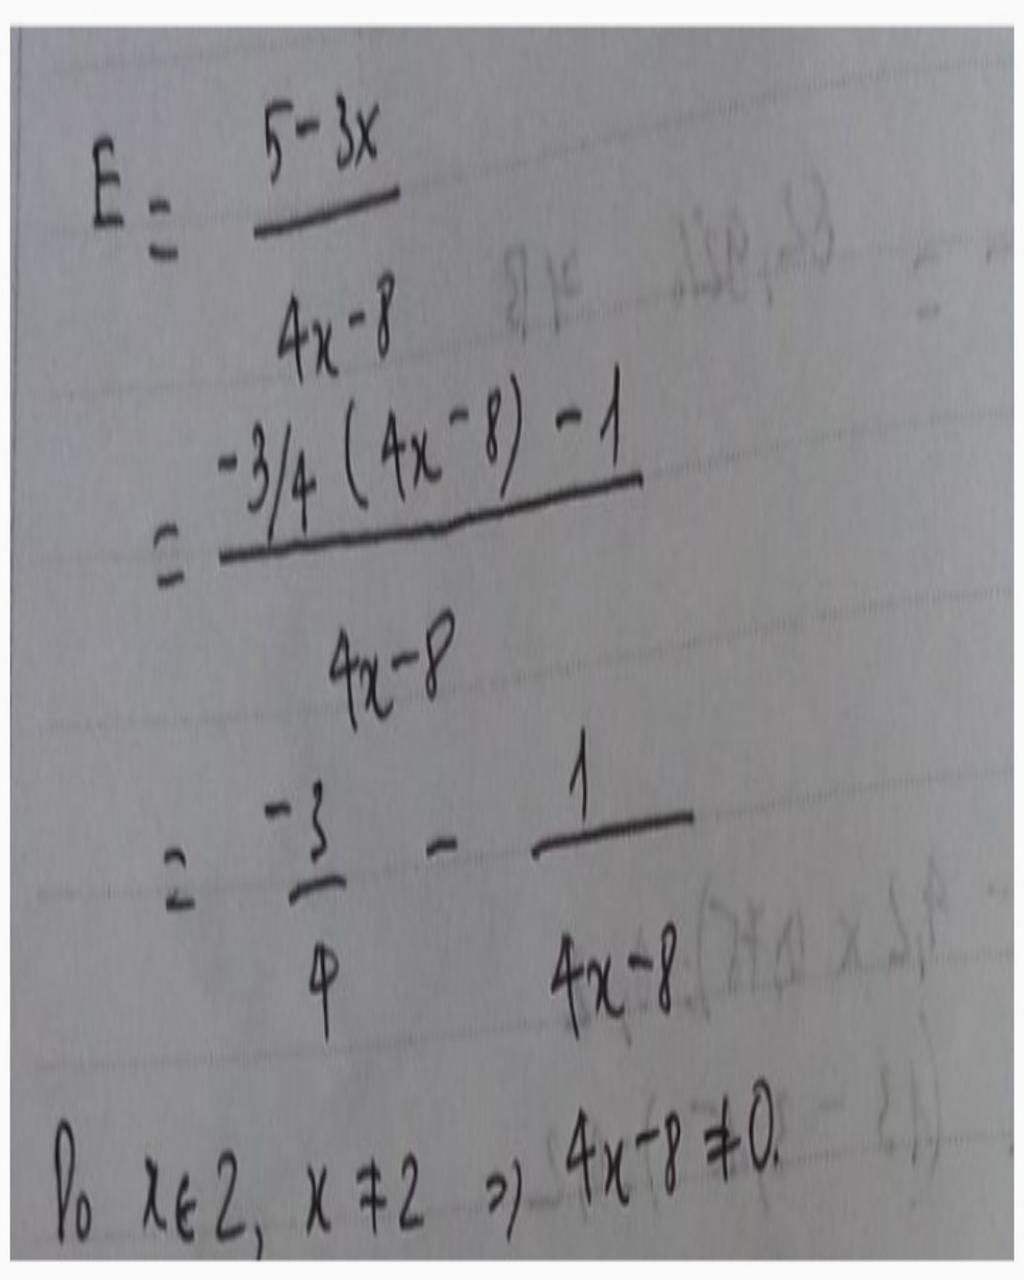 E = \frac{5-3x}{4x-8}
= \frac{-3/4 (4x-8) - 1}{4x-8}
= \frac{-3}{4} - \frac{1}{4x-8}
Do x ∈ Z, x ≠ 2 => 4x-8 ≠ 0.